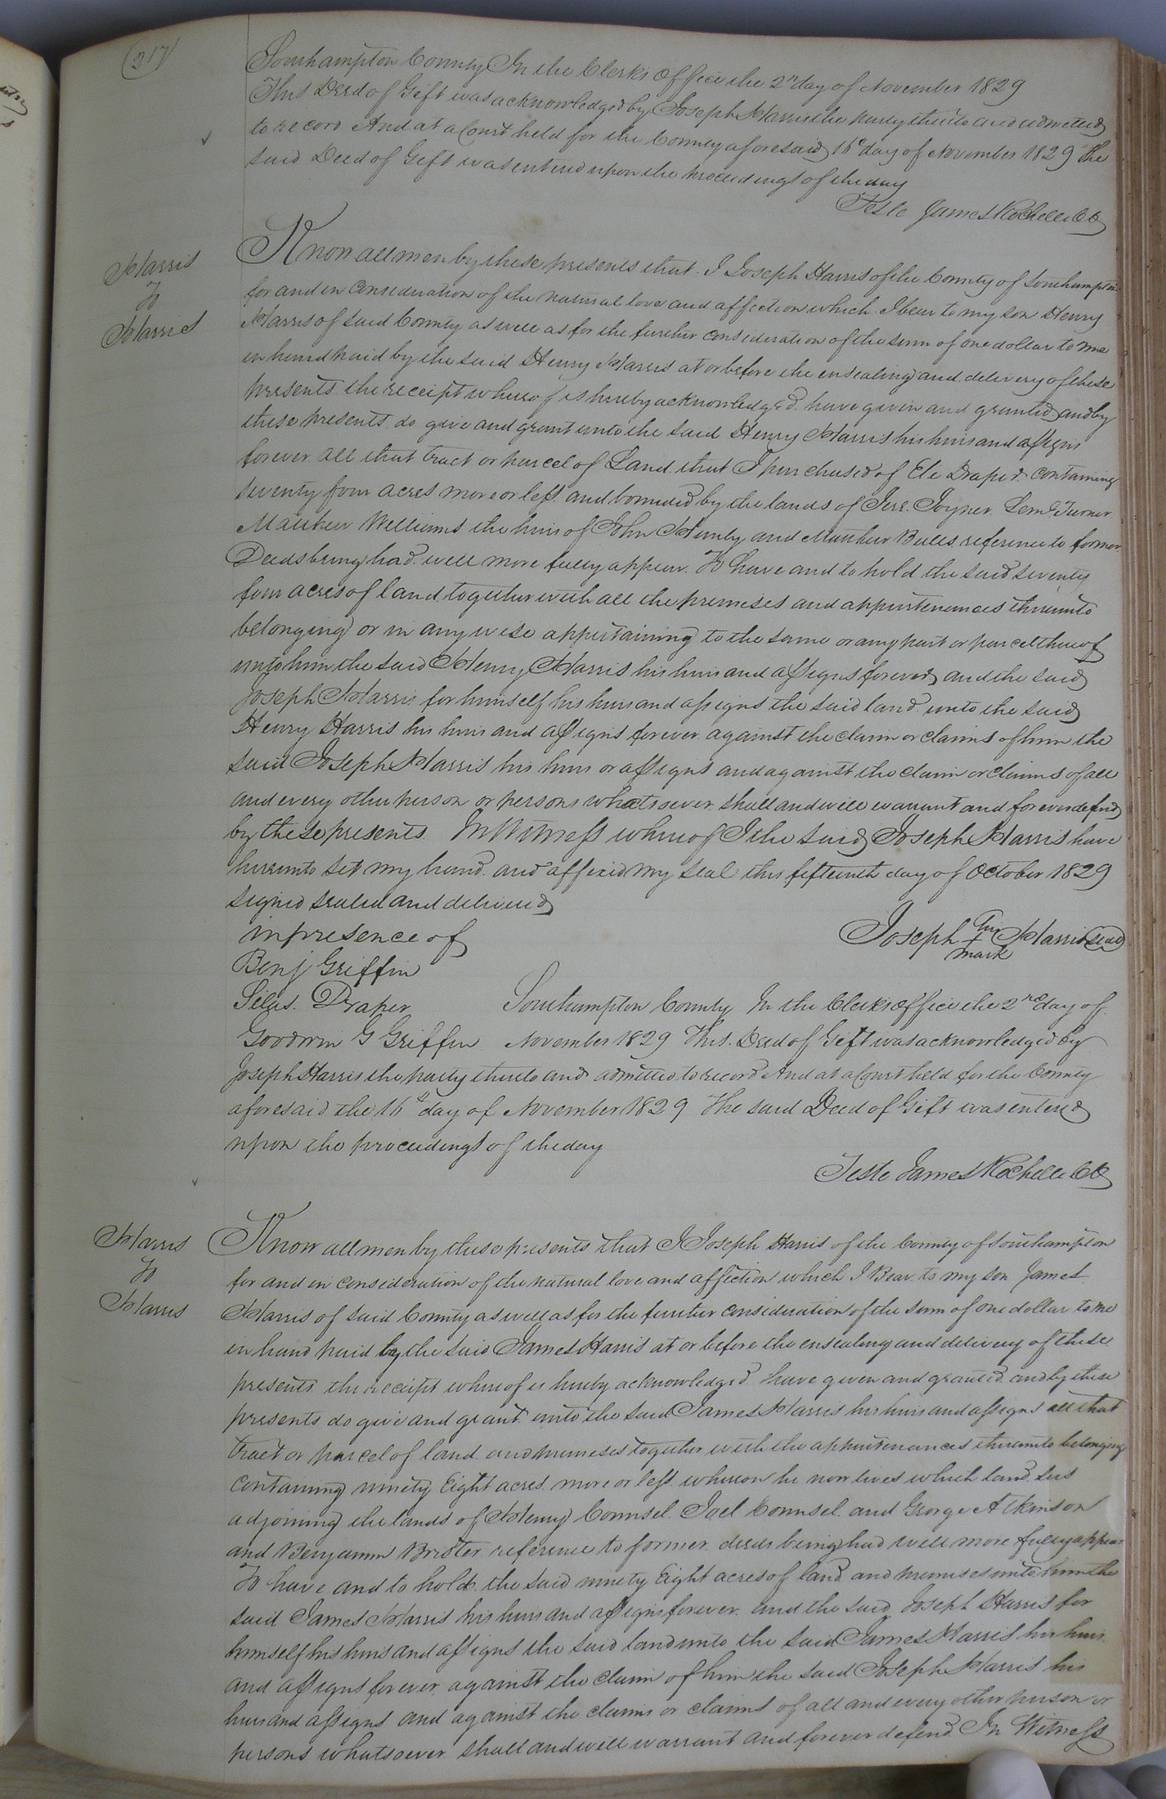 217
Southampton County In the Clerks Office the 2nd day of November 1829
This Deed of Geft was acknowledged by Joseph Harris the party thereto and admitted
to record And at a Court held for the County aforesaid 16th day of November 1829 the
said Deed of Geft was entered upon the proceedings of the day
Teste James Rochelle CC
Harris
To
Harris
Know all men by these presents that I Joseph Harris of the County of Southampton
for and in Consideration of the natural love and affection which I bear to my son Henry
Harris of said County as well as for the further consideration of the sum of one dollar to me
in hand paid by the said Henry Harris at or before the ensealing and delivery of these
presents the receipt whereof is hereby acknowledged, have given and granted and by
these presents do give and grant unto the said Henry Harris his heirs and assigns
forever all that tract or parcel of Land that I purchased of Ele Draper containing
seventy four acres more or less and bounded by the lands of Jese Joyner Lem Turner
Mathew Williams the heirs of John and Mathew reference to former
Deeds being had will more fully appear. To have and to hold the said seventy
four acres of land together with all the premises and appurtenances thereunto
belonging or in any wise appertaining to the same or any part or parcel thereof
unto him the said Henry Harris his heirs and assigns forever and the said
Joseph Harris for himself his heirs and assigns the said land unto the said
Henry Harris his heirs and assigns forever against the claim or claims of him the
said Joseph Harris his heirs or assigns and against the claim or claims of all
and every other person or persons whatsoever shall and will warrant and forever defend
by these presents In Witness whereof I the said Joseph Harris have
hereunto set my hand and affixed my seal this fifteenth day of October 1829
signed sealed and delivered
in presence of
Joseph his + mark Harris seal
Benj Griffin
Silas Draper
Goodwin G Griffin
Southampton County In the Clerks Office the 2nd day of
November 1829 This Deed of Geft was acknowledged by
Joseph Harris the party thereto and admitted to record And at a Court held for the County
aforesaid the 16th day of November 1829 The said Deed of Geft was entered
upon the proceedings of the day
Teste James Rochelle CC
Harris
To
Harris
Know all men by these presents that I Joseph Harris of the County of Southampton
for and in consideration of the natural love and affection which I Bear to my son James
Harris of said County as well as for the further consideration of the sum of one dollar to me
in hand paid by the said James Harris at or before the ensealing and delivery of these
presents the receipt whereof is hereby acknowledged have given and granted and by these
presents do give and grant unto the said James Harris his heirs and assigns all that
tract or parcel of land and premises together with the appurtenances thereunto belonging
containing ninety Eight acres more or less whereon he now lives which land lies
adjoining the lands of Henry Counsel Joel Counsel and George Atkinson
and Benjamin Brister reference to former deeds being had will more fully appear
To have and to hold the said ninety Eight acres of land and premises unto him the
said James Harris his heirs and assigns forever and the said Joseph Harris for
himself his heirs and assigns the said land unto the said James Harris his heirs
and assigns forever against the claim of him the said Joseph Harris his
heirs and assigns and against the claims or claims of all and every other person or
persons whatsoever shall and will warrant and forever defend In Witness